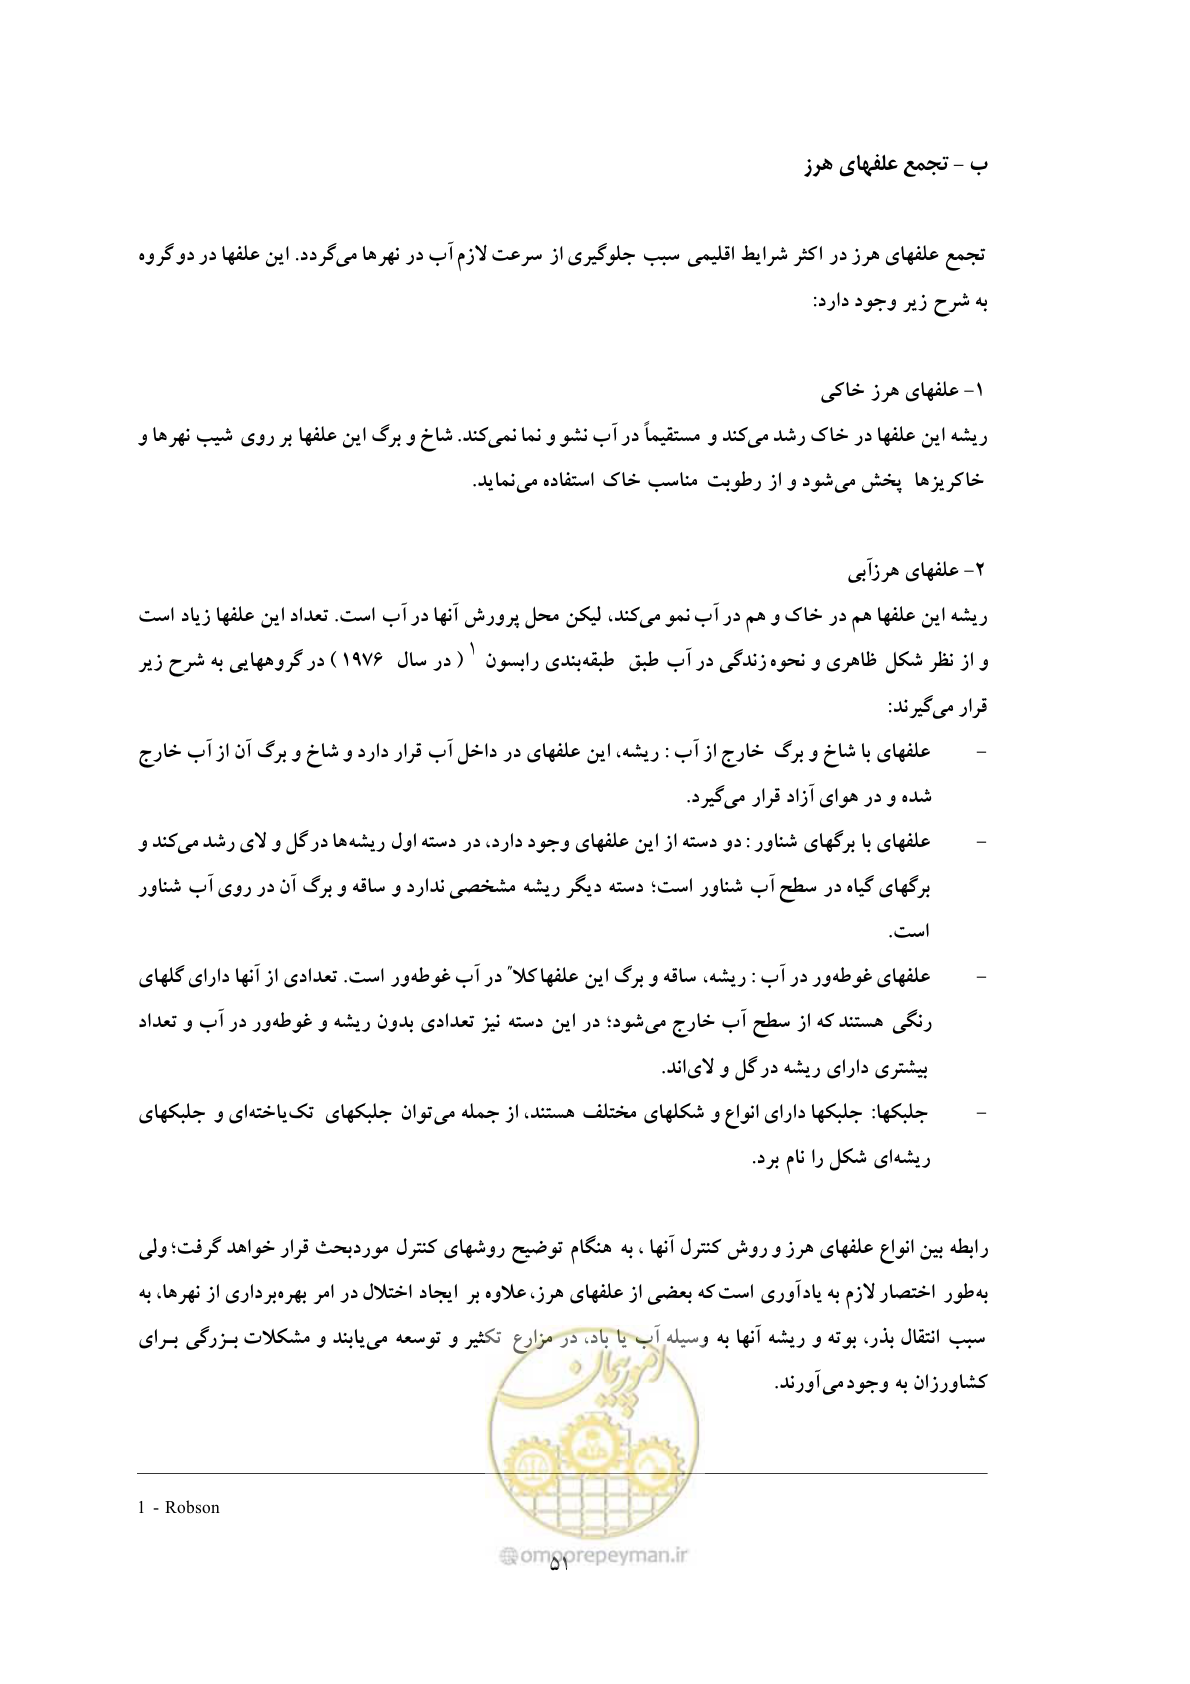 ب – تجمع علفهای هرز
تجمع علفهای هرز در اکثر شرایط اقلیمی سبب جلوگیری از سرعت لازم آب در نهرها می‌گردد. این علفها در دو گروه
به شرح زیر وجود دارد:
۱– علفهای هرز خاکی
ریشه این علفها در خاک رشد می‌کند و مستقیماً در آب نشو و نما نمی‌کند. شاخ و برگ این علفها بر روی شیب نهرها و
خاکریزها پخش می‌شود و از رطوبت مناسب خاک استفاده می‌نماید.
۲– علفهای هرزآبی
ریشه این علفها هم در خاک و هم در آب نمو می‌کند، لیکن محل پرورش آنها در آب است. تعداد این علفها زیاد است
و از نظر شکل ظاهری و نحوه زندگی در آب طبق طبقه‌بندی رابسون ۱ ( در سال ۱۹۷۶ ) در گروههایی به شرح زیر
قرار می‌گیرند:
– علفهای با شاخ و برگ خارج از آب : ریشه، این علفهای در داخل آب قرار دارد و شاخ و برگ آن از آب خارج
شده و در هوای آزاد قرار می‌گیرد.
– علفهای با برگهای شناور : دو دسته از این علفهای وجود دارد، در دسته اول ریشه‌ها در گل و لای رشد می‌کند و
برگهای گیاه در سطح آب شناور است؛ دسته دیگر ریشه مشخصی ندارد و ساقه و برگ آن در روی آب شناور
است.
– علفهای غوطه‌ور در آب : ریشه، ساقه و برگ این علفها کلاً در آب غوطه‌ور است. تعدادی از آنها دارای گلهای
رنگی هستند که از سطح آب خارج می‌شود؛ در این دسته نیز تعدادی بدون ریشه و غوطه‌ور در آب و تعداد
بیشتری دارای ریشه در گل و لای‌اند.
– جلبکها: جلبکها دارای انواع و شکلهای مختلف هستند، از جمله می‌توان جلبکهای تک‌یاخته‌ای و جلبکهای
ریشه‌ای شکل را نام برد.
رابطه بین انواع علفهای هرز و روش کنترل آنها ، به هنگام توضیح روشهای کنترل موردبحث قرار خواهد گرفت؛ ولی
به‌طور اختصار لازم به یادآوری است که بعضی از علفهای هرز، علاوه بر ایجاد اختلال در امر بهره‌برداری از نهرها، به
سبب انتقال بذر، بوته و ریشه آنها به وسیله آب یا باد، در مزارع تکثیر و توسعه می‌یابند و مشکلات بـزرگی بـرای
کشاورزان به وجود می‌آورند.
امور پیمان
1 - Robson
@omoorepeyman.ir
۵۱